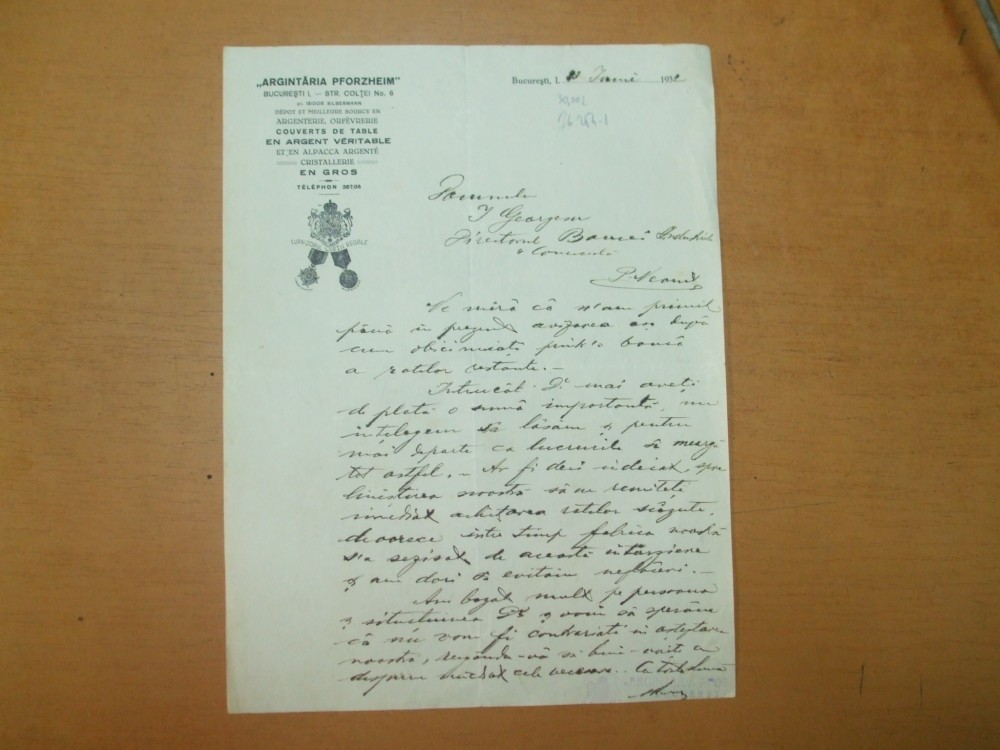 „ARGINTĂRIA PFORZHEIM"
BUCUREŞTI I. — STR. COLŢEI No. 6
ISIDOR SILBERMANN
DÉPOT ET MEILLEURE SOURCE EN
ARGENTERIE, ORFÈVRERIE
COUVERTS DE TABLE
EN ARGENT VÉRITABLE
ET EN ALPACCA ARGENTÉ
CRISTALLERIE
EN GROS
TÉLÉPHON 367/04
Bucureşti, I. Iunie 193
Domnule
I Georgescu
Directorul Bancei
P. Neamț
Ne miră că n'am primit
până în prezent avizarea
cum obicinuiati banca
a ratelor restante. —
Intrucât Dv mai aveti
de plată o sumă importantă, nu
intelegem să lăsăm și pentru
mai departe ca lucrurile să meargă
tot astfel. — Ar fi deci indicat, spre
linistirea noastră să ne remiteti
imediat achitarea ratelor
deoarece intre timp fabrica noastră
s'a sezisat de aceasta intarziere
și am dori să evităm neplăceri. —
Am bazat mult pe persoana
și situatiunea Dv și voim să sperăm
că nu vom fi contrariati in asteptarea
noastră, rugându-vă să bine-voiti a
dispune imediat cele necesare. Cu toată stima